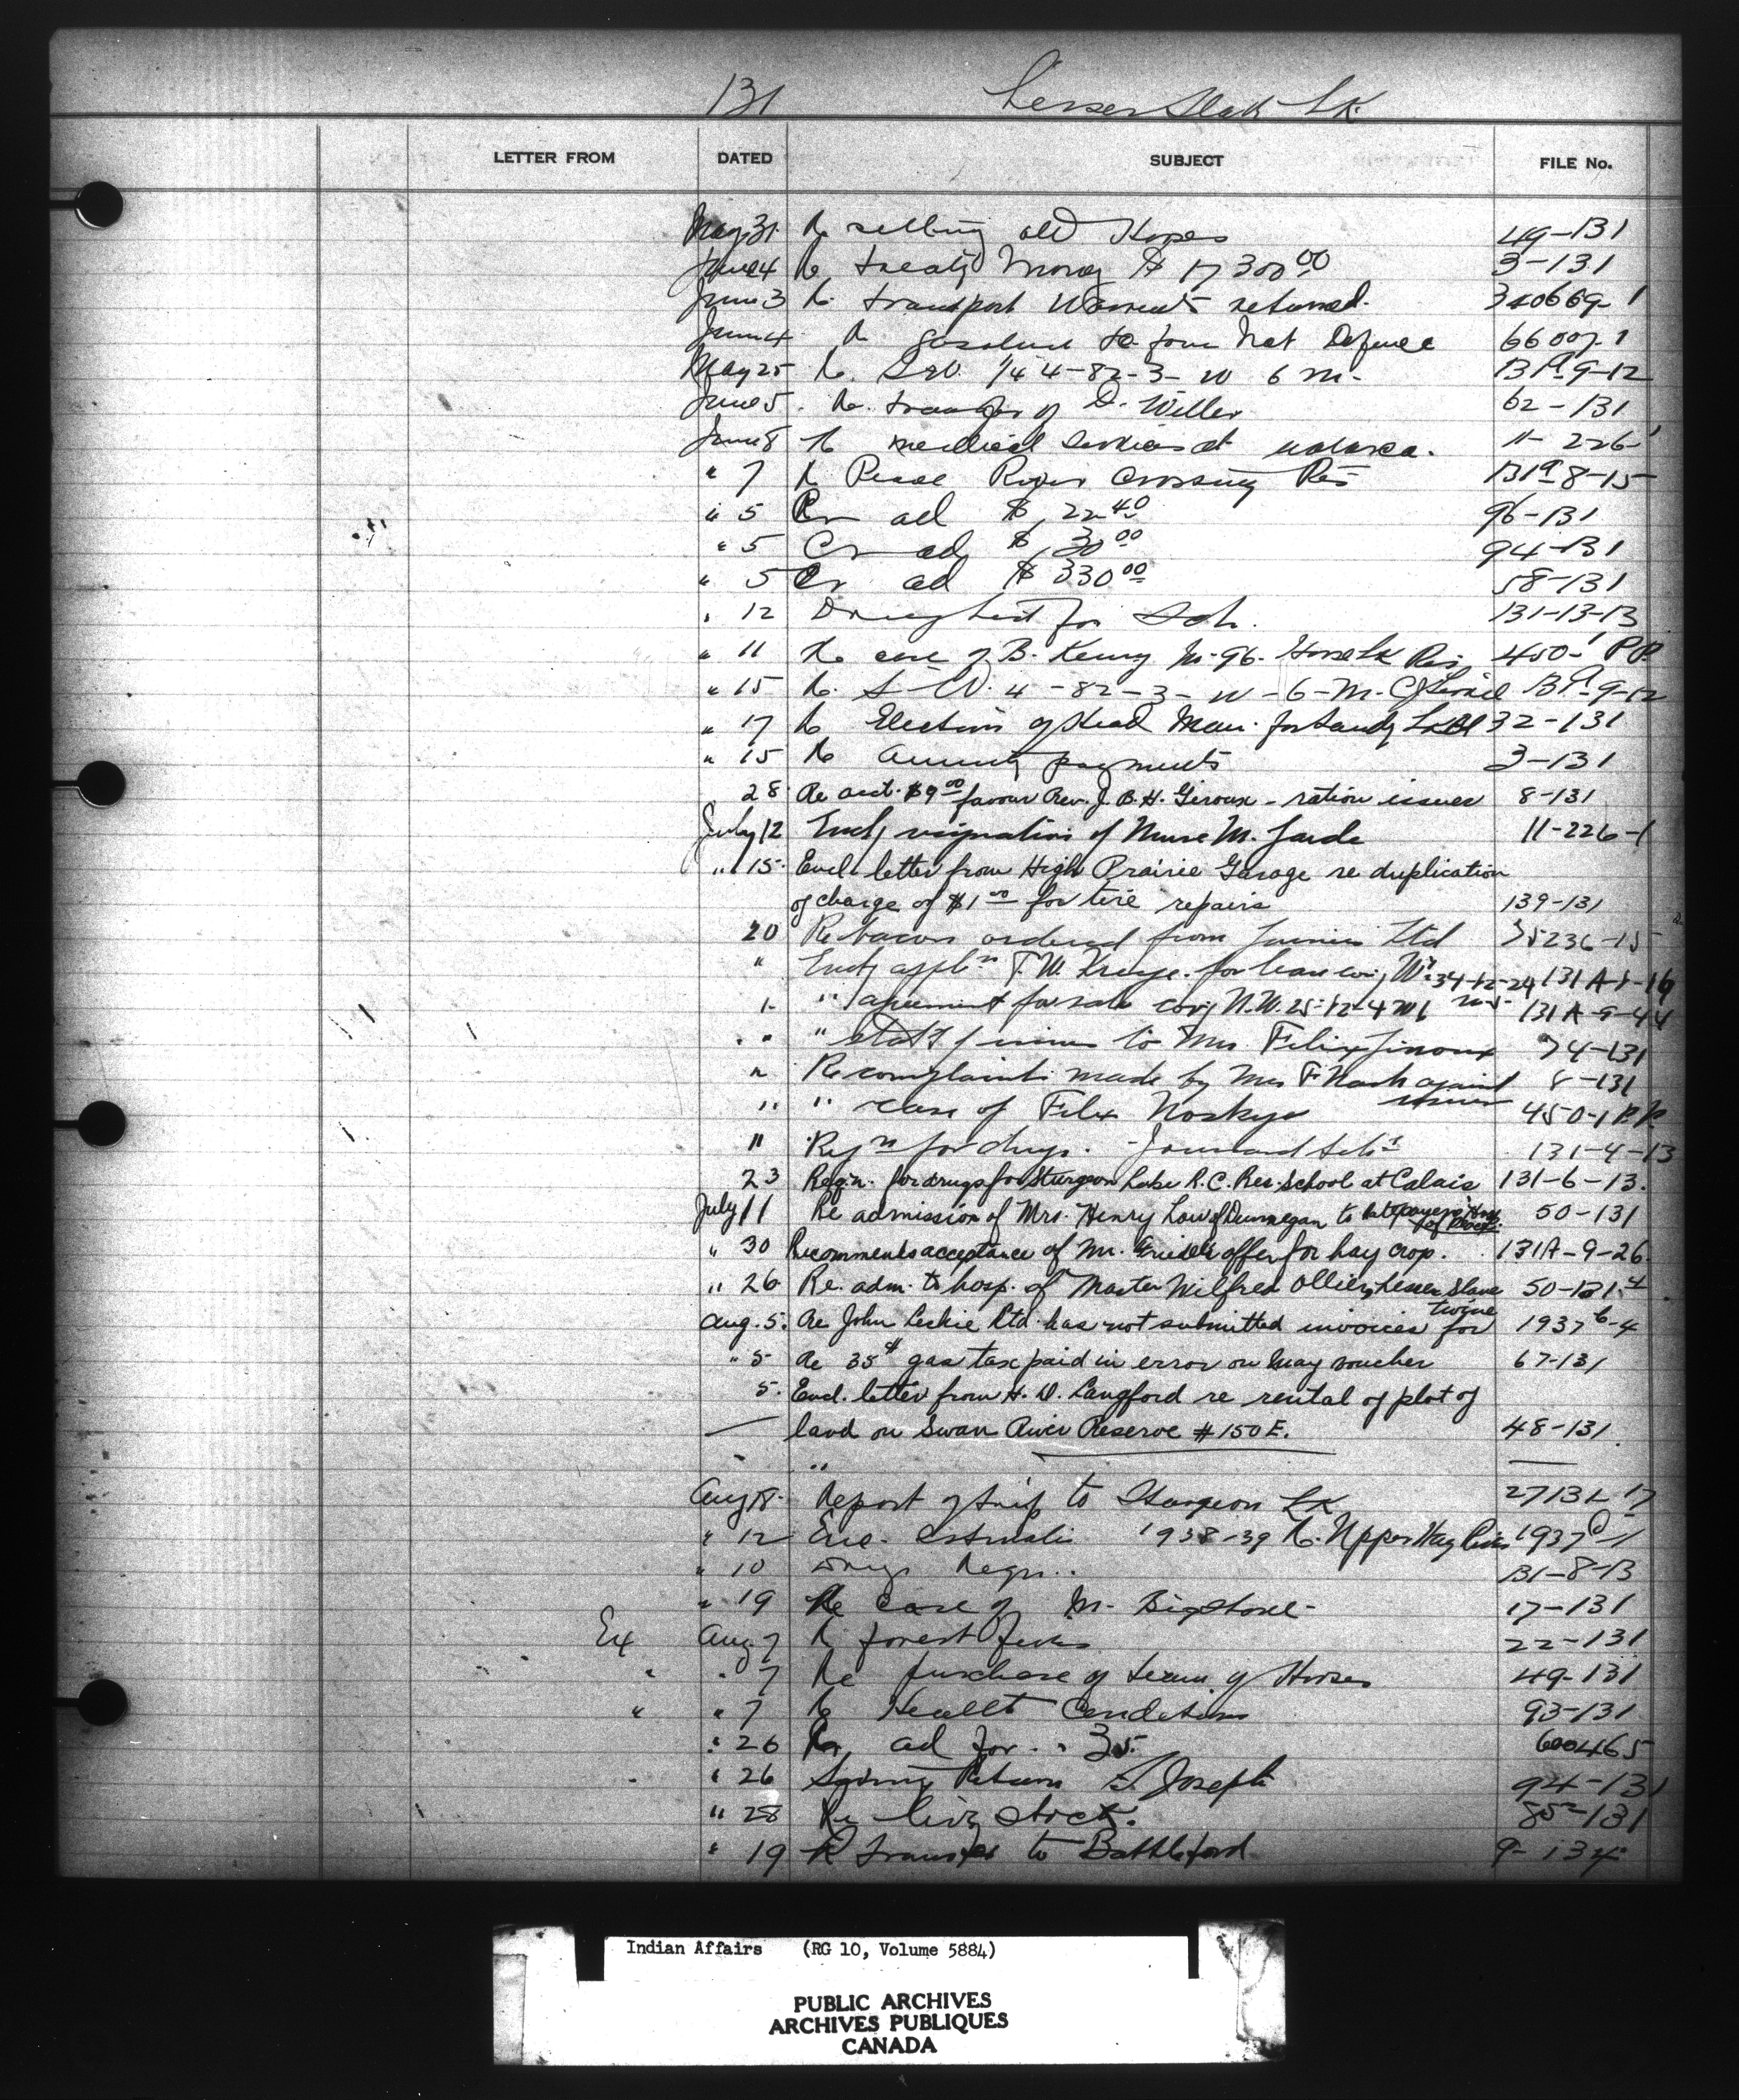 131 Lesser Slave Lk.
LETTER FROM DATED SUBJECT FILE No.
May 31 Re selling old Horses 49-131
June 4 Re Treaty Money $17300 00 3-131
June 3 Re transport Warrants returned. 340669-1
June 4 Re gasoline from Nat Defence 66007-1
May 25 Re. S.W. 1/4 4-82-3- W 6 M- 131A-9-12
June 5. Re. transfer of D. Willer 62-131
June 8 Re medical services at 11-226-1
" 7 Re Peace River Crossing Res 131A-8-15
" 5 Cr ad $ 22 40 96-131
" 5 Cr ad $ 30 00 94-131
" 5 Cr ad $ 330 00 58-131
" 12 Drug list for Sch. 131-13-13
" 11 Re case of B. Kenny M-96- Horse Lk Res 450-1 PR
" 15 Re. S-W. 4-82-3-W-6-M. 131A-9-12
" 17 Re Election of Head Man for Sandy Lk 32-131
" 15 Re Annuity payments 3-131
28 Re acct. $9 00 favour Rev. J. B. H. Giroux - ration issues 8-131
July 12 Encl resignation of Nurse M. 11-226-1
" 15. Encl. letter from High Prairie Garage re duplication
of charge of $1 00 for tire repairs 139-131
20 Re bacon ordered from Ltd 35236-15
" Encl appln for lease cov'g 34-12-24 131A-1-16
" " agreement for sale cov'g N.W. 25-12-4 W5 131A-9-44
" " " to Mrs Felix Giroux 74-131
" Re complaints made by Mrs F Nash against 8-131
" " case of Felix Noskye 450-1 P.R.
" Reqn for drugs. 131-4-13
23 Reqn. for drugs for Sturgeon Lake R.C. Res. School at Calais 131-6-13.
July 11 Re admission of Mrs. Henry Low of Dunvegan to 50-131
" 30 Recommends acceptance of Mr. offer for hay crop. 131A-9-26.
" 26 Re. adm. to hosp. of Master Wilfred Ollier, Lesser Slave 50-131-4
twine
Aug. 5. Re John Leckie Ltd. has not submitted invoices for 1937 b-4
" 5 Re 35¢ gas tax paid in error on May voucher 67-131
5. Encl. letter from H. D. Langford re rental of plot of
land on Swan River Reserve #150E. 48-131
"
Aug 18. Report of trip to Sturgeon Lk 27131-17
" 12 Enc. Estimates 1938-39 Re. Upper Hay River 1937
" 10 Drug Reqn.. 131-8-13
" 19 Re case of M. Bigstone 17-131
Ex Aug 7 Re forest fires 22-131
" " 7 Re purchase of team of Horses 49-131
" " 7 Re Health Conditions 93-131
" 26 Re, ad for 35. 600465
" 26 Return St. Joseph 94-131
" 28 Re live stock. 85-131
" 19 Re Transfer to Battleford 9-134
Indian Affairs (RG 10, Volume 5884)
PUBLIC ARCHIVES
ARCHIVES PUBLIQUES
CANADA